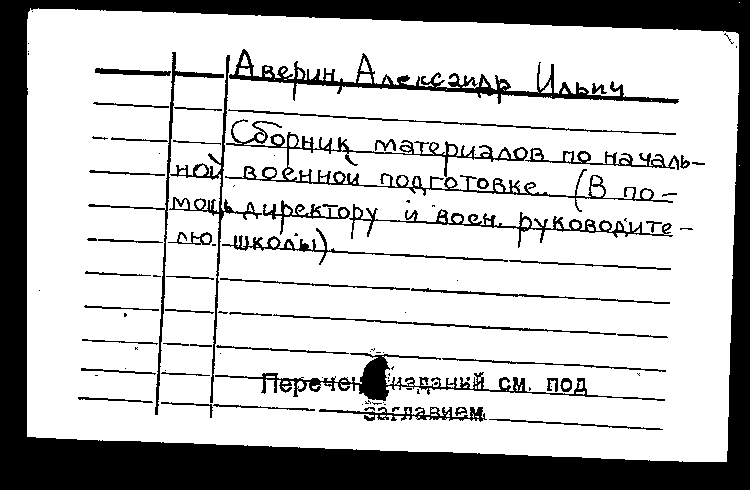 Аверин, Александр Ильич
Сборник материалов по началь-
ной военной подготовке. (В по-
мощь директору и воен. руководите-
лю школы).
Перечень изданий см. под
заглавием